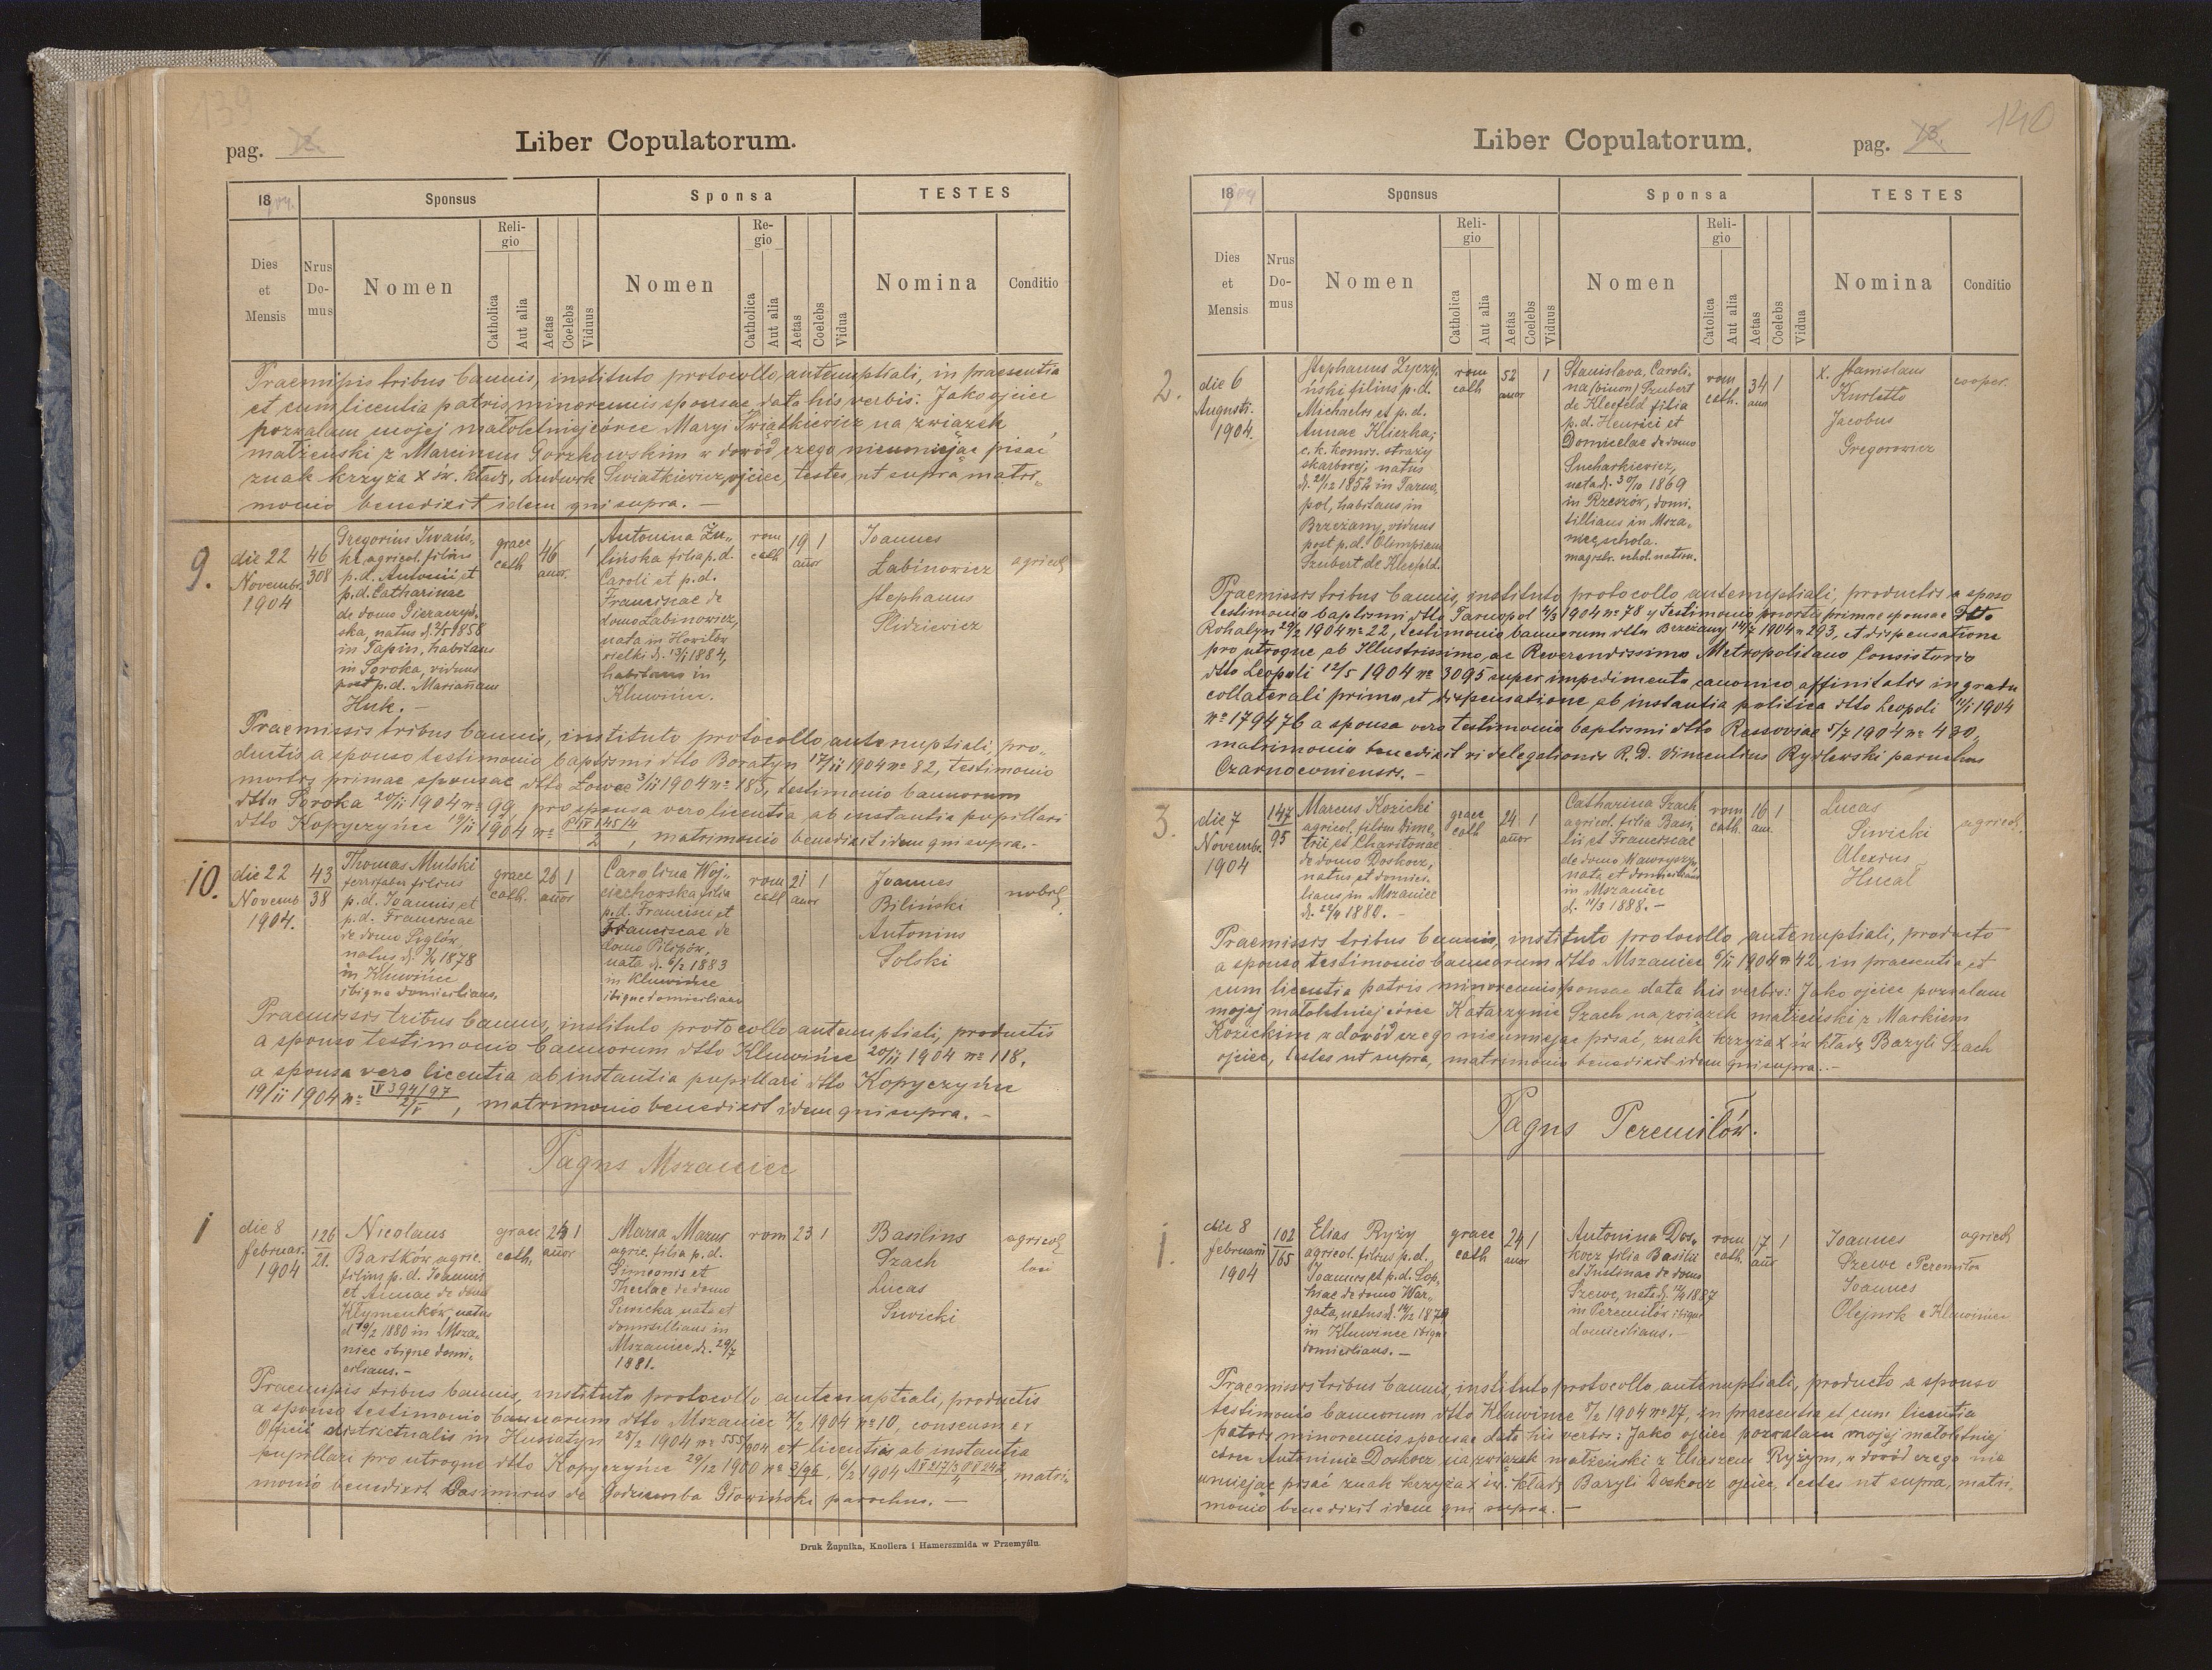 139
pag. 12.
Liber Copulatorum.
1904.
Sponsus
Sponsa
TESTES
Dies et Mensis
Nrus Domus
Nomen
Religio
Catholica
Aut alia
Aetas
Coelebs
Viduus
Nomen
Religio
Catholica
Aut alia
Aetas
Coelebs
Vidua
Nomina
Conditio
Praemissis tribus bannis, instituto protocollo antenuptiali, in praesentia
et cum licentia patris minorennis sponsae data his verbis: Jako ojciec
pozwalam mojej małoletniej córce Maryi Świątkiewicz na związek
małżeński z Marcinem Gorzkowskim w dowód czego nieumiejąc pisać
znak krzyża x św. kładę, Ludwik Świątkiewicz, ojciec, testes, ut supra matri-
monio benedixit idem qui supra. —
9.
die 22
Novembr.
1904
46
308
Gregorius Iwańs-
ki, agricol. filius
p.d. Antonii et
p.d. Catharinae
de domo
natus d. 2/5 1858
in Tapin, habitans
in Soroka, viduus
post p.d. Mariannam
Huk. —
graec
cath
46
annor.
1
Antonina Zu-
lińska filia p.d.
Caroli et p.d.
Franciscae de
domo Łabinowicz,
nata in Howiłów
wielki d. 13/1 1884,
habitans in
Kluwińce.
rom
cath
19
annor
1
Joannes
Łabinowicz
Stephanus
Slidziewicz
agricol
Praemissis tribus bannis, instituto protocollo antenuptiali, pro-
ductis a sponso testimonio baptismi dtto Boratyn 17/11 1904 № 82, testimonio
mortis primae sponsae dtto Łowce 3/11 1904 № 185, testimonio bannorum
dtto Soroka 20/11 1904 № 99, pro sponsa vero licentia ab instantia pupillari
dtto Kopyczyńce 19/11 1904 № , matrimonio benedixit idem qui supra. —
10.
die 22
Novemb
1904.
43
38
Thomas Mulski
ferrifaber filius
p.d. Joannis et
p.d. Franciscae
de domo Siglów,
natus d. 3/4 1878
in Kluwińce
ibique domicilians.
graec
cath.
26
annor
1
Carolina Woj-
ciechowska filia
p.d. Francisci et
Franciscae de
domo Pilipów,
nata d. 6/2 1883
in Kluwińce
ibique domicilians
rom
cath
21
annor
1
Joannes
Biliński
Antonius
Solski
nobil
Praemissis tribus bannis, instituto protocollo antenuptiali, productis
a sponso testimonio bannorum dtto Kluwińce 20/11 1904 № 118,
a sponsa vero licentia ab instantia pupillari dtto Kopyczyńce
19/11 1904 № IV 394/97 , matrimonio benedixit idem qui supra. —
Pagus Mszaniec
1
die 8
februar.
1904
126
21.
Nicolaus
Bartków agric.
filius p.d. Joannis
et Annae de domo
Klymonków, natus
d. 19/2 1880 in Msza-
niec ibique domi-
cilians. —
graec
cath.
24
annor
1
Maria Mazur
agric. filia p.d.
Simeonis et
Theclae de domo
Siwicka nata et
domicilians in
Mszaniec d. 29/7
1881.
rom
23
1
Basilius
Szach
Lucas
Siwicki
agricol
loci
Praemissis tribus bannis, instituto protocollo antenuptiali productis
a sponso testimonio bannorum dtto Mszaniec 7/2 1904 № 10, consensu ex
Officii districtualis in Husiatyn 25/2 1904 № 555/904 et licentiis ab instantia
pupillari pro utroque dtto Kopyczyńce 29/12 1900 № 3/96, 6/2 1904 , matri-
monio benedixit Casimirus de Godzemba Głowiński parochus. —
Druk Żupnika, Knollera i Hamerszmida w Przemyślu.
140
Liber Copulatorum.
pag. 13.
1904
Sponsus
Sponsa
TESTES
Dies et Mensis
Nrus Domus
Nomen
Religio
Catholica
Aut alia
Aetas
Coelebs
Viduus
Nomen
Religio
Catolica
Aut alia
Aetas
Coelebs
Vidua
Nomina
Conditio
2.
die 6
Augusti.
1904.
Stephanus Zyczy-
ński filius p.d.
Michaelis et p.d.
Annae Kliczka,
c. k. komis. straży
skarbowej, natus
d. 21/12 1852 in Tarno-
pol, habitans in
Brzeżany, viduus
post p.d. Olimpiam
Szubert de Kleefeld.
rom
cath
52
annor
1
Stanislava, Caroli-
na (binom) Szubert
de Kleefeld filia
p.d. Henrici et
Domicelae de domo
Sucharkiewicz,
nata d. 30/10 1869
in Rzeszów, domi-
cilians in Msza-
niec, schola.
magistr. schol. nation.
rom
cath.
34
ann
1
X. Stanislaus
Kurletto
Jacobus
Gregorowicz
cooper.
Praemissis tribus bannis, instituto protocollo antenuptiali, productis a sponso
testimonio baptismi dtto Tarnopol 4/3 1904 № 78 et testimonio mortis primae sponsae dtto
Rohatyn 29/2 1904 № 22, testimonio bannorum dtto Brzeżany 14/7 1904 № 293, et dispensatione
pro utroque ab Illustrissimo ac Reverendissimo Metropolitano Consistorio
dtto Leopoli 12/5 1904 № 3095 super impedimento canonico affinitatis in gradu
collaterali primo, et dispensatione ab instantia politica dtto Leopoli 1904
№ 179476 a sponsa vero testimonio baptismi dtto Ressoviae 5/7 1904 № 430,
matrimonio benedixit vi delegationis R. D. Vincentius Rydlewski parochus
Czarnoconiensis. —
3.
die 7
Novembr.
1904
147
95
Marcus Kozicki
agricol. filius Dime-
trii et Charitonae
de domo Doskocz,
natus et domici-
lians in Mszaniec
d. 22/4 1880. —
graec
cath
24
annor
1
Catharina Szach
agricol. filia Basi-
lii et Franciscae
de domo Wawryszyn,
nata et domicilians
in Mszaniec
d. 11/3 1888. —
rom
cath.
16
an.
1
Lucas
Siwicki
Alexius
Hucał
agricol.
Praemissis tribus bannis, instituto protocollo antenuptiali, producto
a sponso testimonio bannorum dtto Mszaniec 6/11 1904 № 42, in praesentia et
cum licentia patris minorennis sponsae data his verbis: Jako ojciec pozwalam
mojej małoletniej córce Katarzynie Szach na związek małżeński z Markiem
Kozickim w dowód czego nieumiejąc pisać, znak krzyża x św. kładę Bazyli Szach
ojciec, testes ut supra, matrimonio benedixit idem qui supra. —
Pagus Peremiłów.
1.
die 8
februarii
1904
102
165
Elias Ryży
agricol. filius p.d.
Joannis et p.d. Sop-
hiae de domo War-
gata, natus d. 14/12 1879
in Kluwince ibique
domicilians. —
graec
cath
24
annor
1
Antonina Dos-
kocz filia Basilii
et Justinae de domo
Szewc, nata d. 12/4 1887
in Peremiłów ibique
domicilians. —
rom
cath.
17
annor
1
Joannes
Szewc e Peremiłów
Joannes
Olejnik e Kluwinice
agricol
Praemissis tribus bannis, instituto protocollo antenuptiali, producto a sponso
testimonio bannorum dtto Kluwince 8/2 1904 № 27, in praesentia et cum licentia
patris minorennis sponsae data his verbis: Jako ojciec pozwalam mojej małoletniej
córce Antoninie Doskocz na związek małżeński z Eliaszem Ryżym, w dowód czego nie
umiejąc pisać znak krzyża x św. kładę Bazyli Doskocz ojciec, testes ut supra, matri-
monio benedixit idem qui supra. —